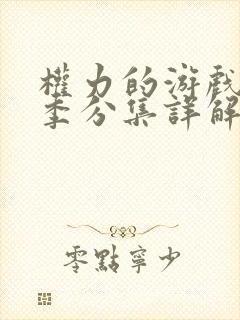 權力的游戲
季分集詳解
零點寧少